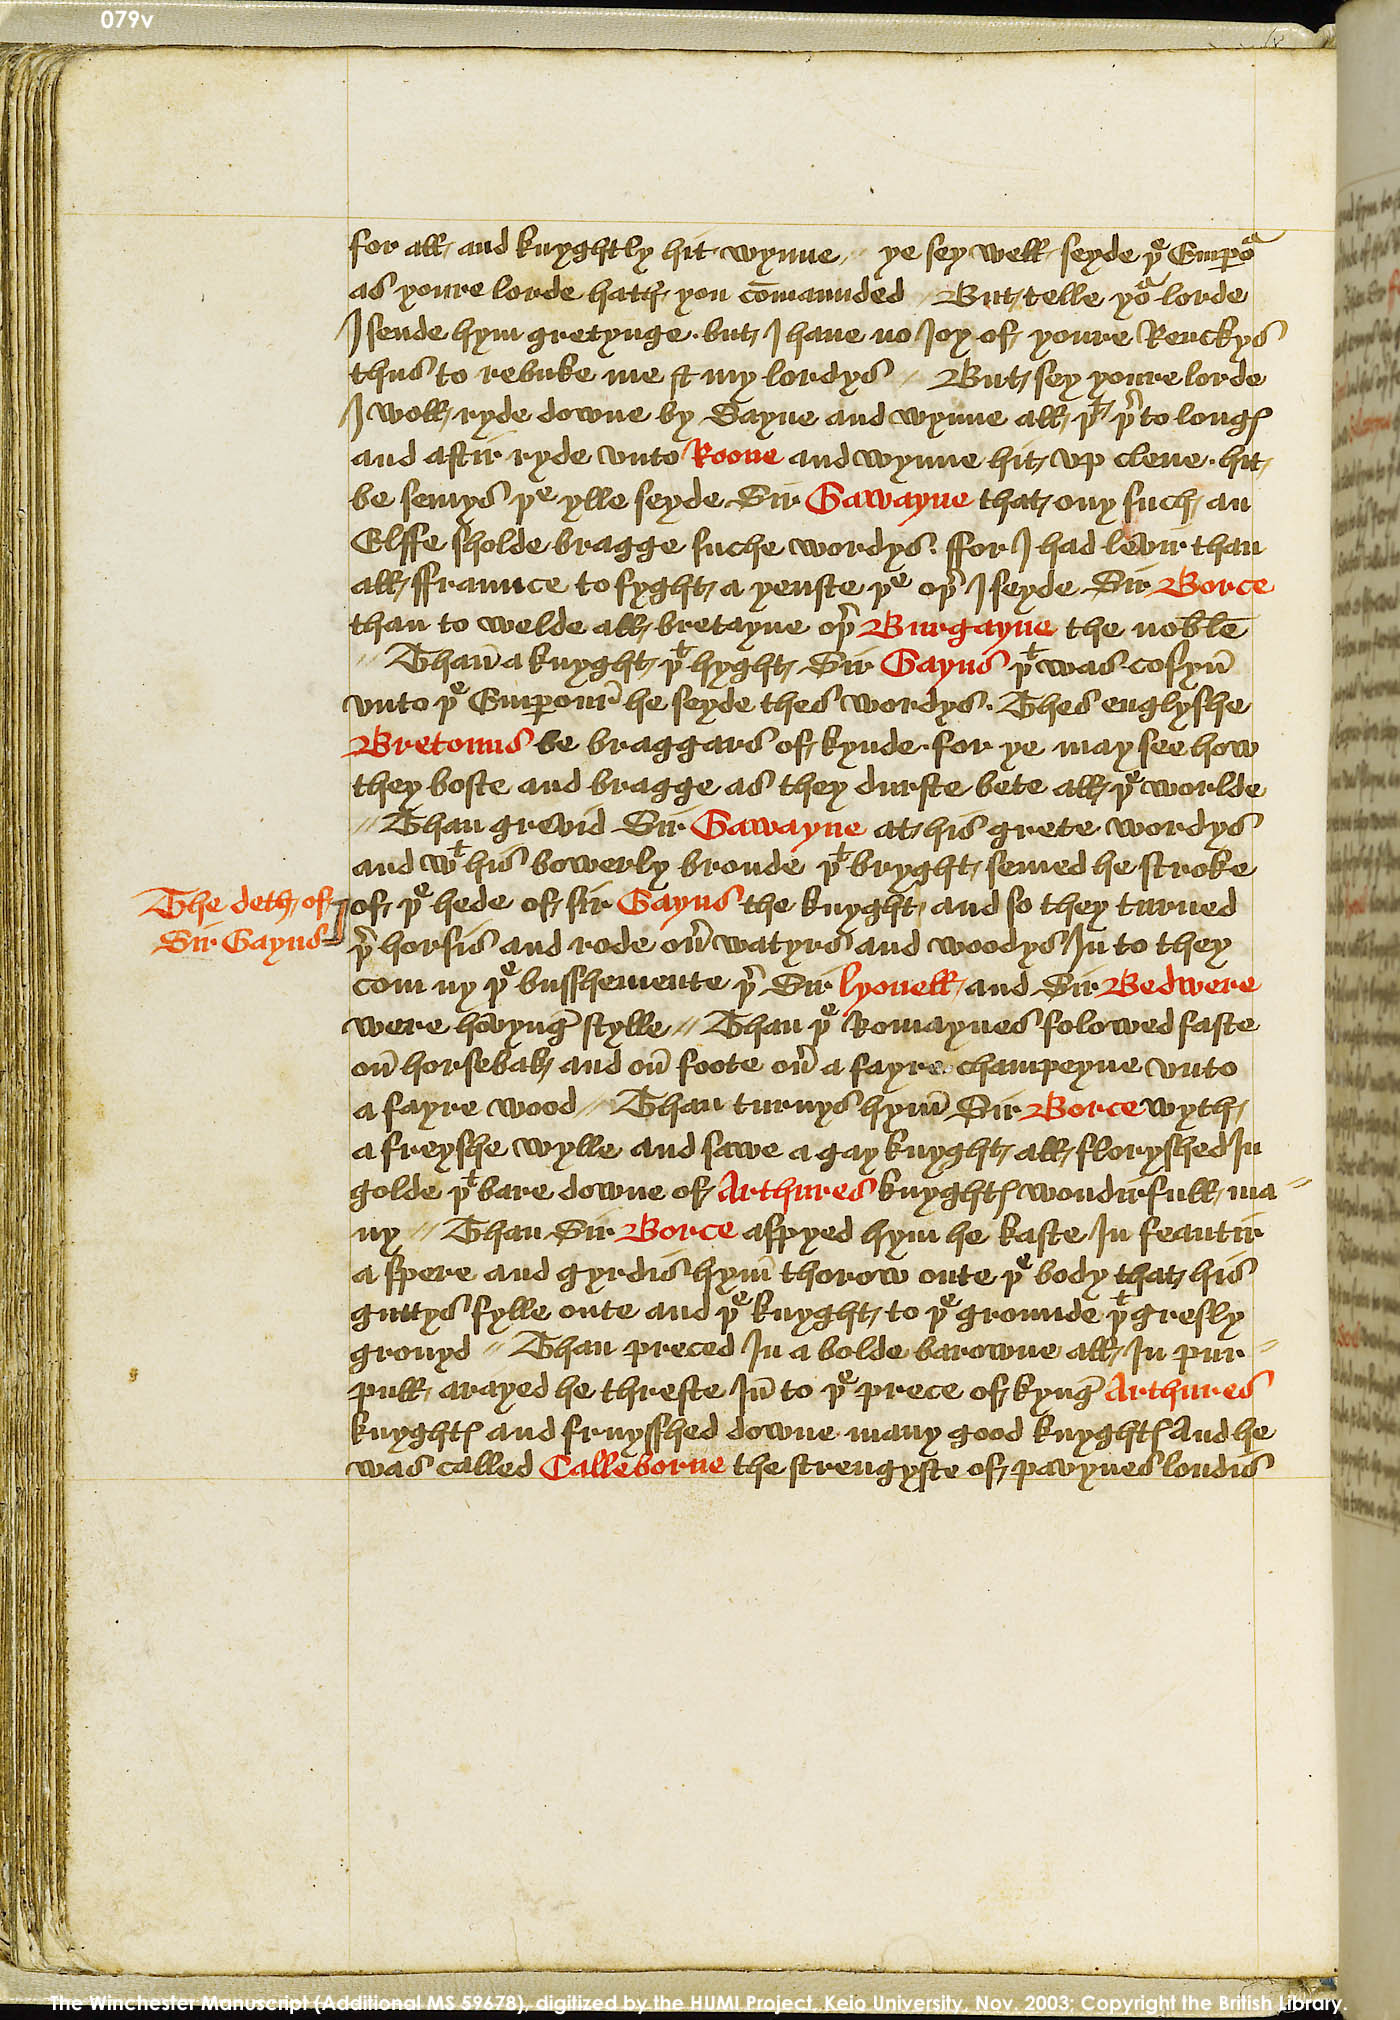 079v
for all and knyghtly hit wynne // ye sey well seyde þe Empoʳ
as youre lorde hath you cōmaunded // But telle yoʳ lorde
I sende hym gretynge · but I haue no Ioy of youre Renckys
thus to rebuke me & my lordys // But sey youre lorde
I woll ryde downe by Sayne and wynne all þᵗ þʳto longꝭ
and aftir ryde vnto Roone and wynne hit vp clene · hit
be semys þe ylle seyde Sir Gawayne that ony such an
Elffe sholde bragge suche wordys · ffor I had levir than
all ffraunce to fyght a yenste þe oþʳ I seyde Sir Borce
than to welde all bretayne oþʳ Burgayne the noble
// Than̄ a knyght þᵗ hyght Sir Gayus þᵗ was cosyn̄
vnto þe Empour he seyde thes wordys · Thes englyshe
Bretouns be braggars of kynde · for ye may see how
they boste and bragge as they durste bete all þe worlde
// Than grevid Sir Gawayne at his grete wordys
and wᵗ his bowerly bronde þᵗ bryght semed he stroke
The deth of
Sir Gayus
of þe hede of sir Gayus the knyght and so they turned
þʳ horsis and rode ouʳ watyrs and woodys In to they
com ny þe busshemente þʳ Sir lyonell and Sir Bedwere
were hovyng stylle // Than þe Romaynes folowed faste
on̄ horsebak and on̄ foote ouʳ a fayre champeyne vnto
a fayre wood // Than turnys hym̄ Sir Borce wyth
a freyshe wylle and sawe a gay knyght all floryshed In
golde þᵗ bare downe of Arthures knyghtꝭ wondirfull ma-
ny // Than Sir Borce aspyed hym he kaste In feautir
a spere and gyrdis hym̄ thorow oute þe body that his
guttys fylle oute and þe knyght to þe grounde þᵗ gresly
gronyd // Than preced In a bolde barowne all In pur-
pull arayed he threste In̄ to þe prece of kyng Arthures
knyghtꝭ and fruysshed downe many good knyghtꝭ And he
was called Calleborne the strengyste of pavynes londis
The Winchester Manuscript (Additional MS 59678), digitized by the HUMI Project, Keio University, Nov. 2003; Copyright the British Library.